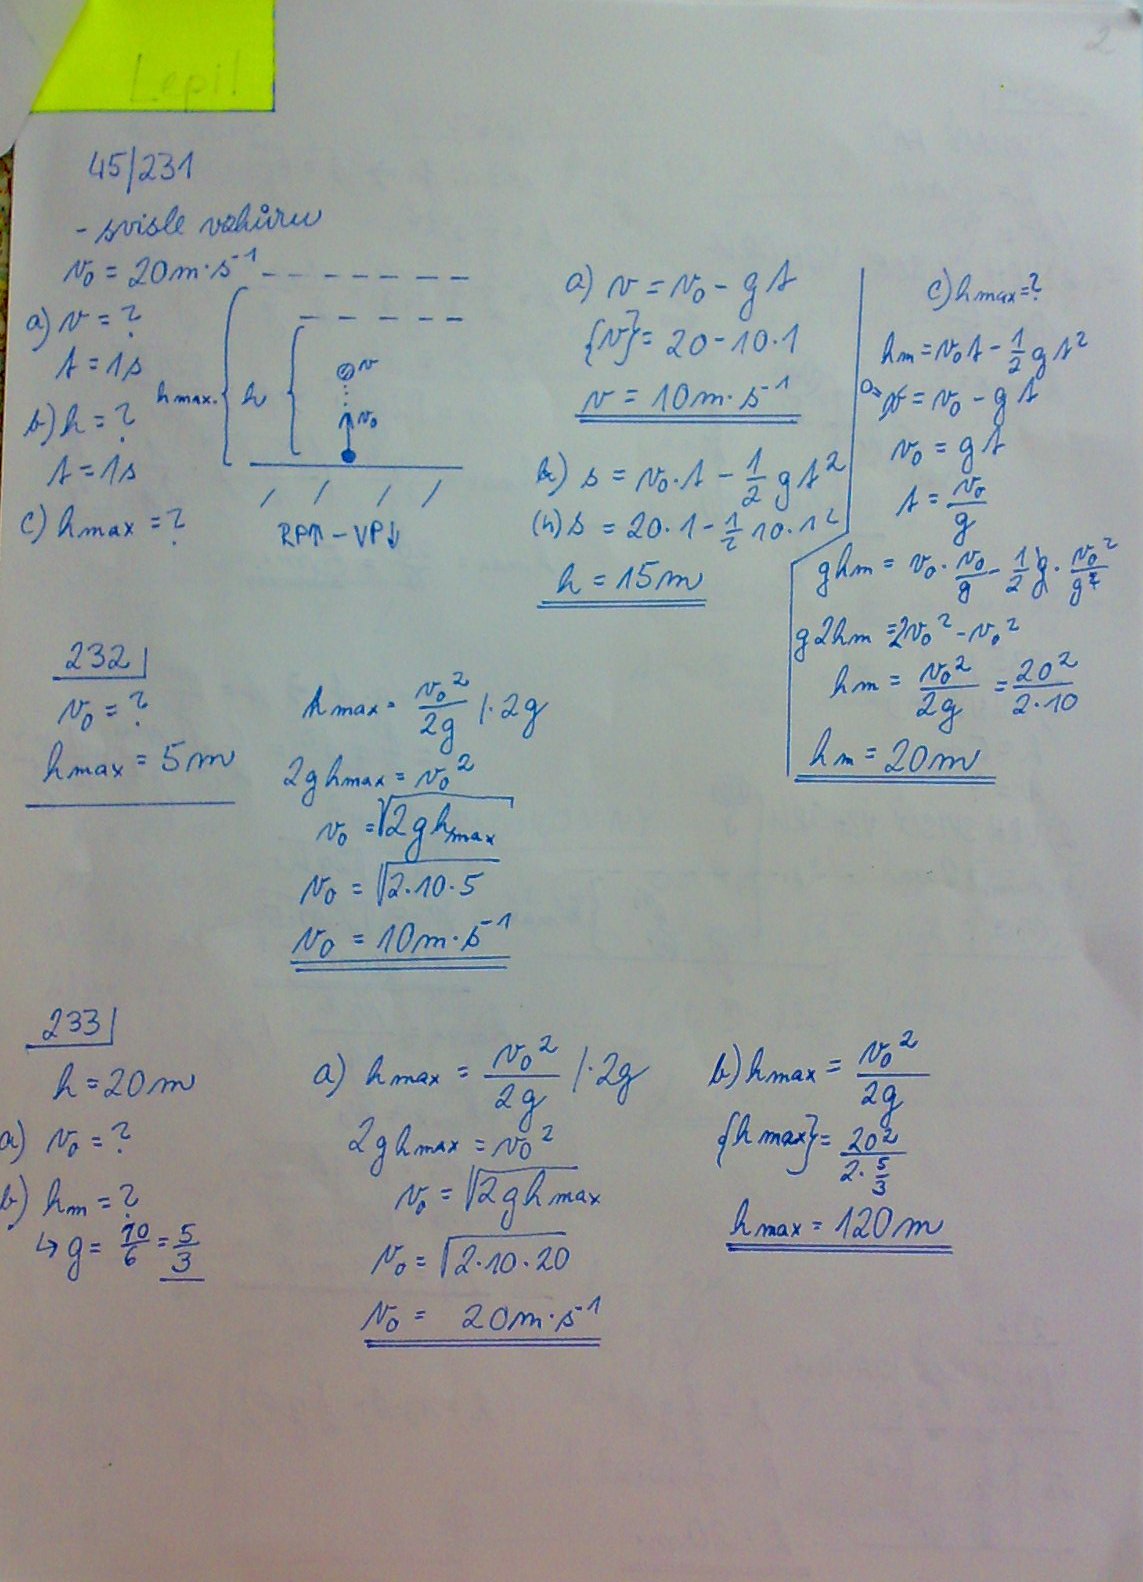 2
Lepil
45/231
- svisle vzhůru
v₀ = 20 m·s⁻¹
a) v = ?
t = 1s
b) h = ?
t = 1s
c) h max = ?
h max.
h
v
v₀
RP↑ - VP↓
a) v = v₀ - gt
{v} = 20 - 10·1
v = 10 m·s⁻¹
b) s = v₀·t - 1/2 gt²
(h) s = 20·1 - 1/2 10·1²
h = 15 m
c) h max = ?
hm = v₀t - 1/2 gt²
0= v = v₀ - gt
v₀ = gt
t = v₀/g
ghm = v₀·v₀/g - 1/2 g·v₀²/g²
g2hm = 2v₀² - v₀²
hm = v₀²/2g = 20²/2·10
hm = 20 m
232
v₀ = ?
h max = 5 m
h max = v₀²/2g /·2g
2gh max = v₀²
v₀ = √2gh max
v₀ = √2·10·5
v₀ = 10 m·s⁻¹
233
h = 20 m
a) v₀ = ?
b) hm = ?
↳ g = 10/6 = 5/3
a) h max = v₀²/2g /·2g
2gh max = v₀²
v₀ = √2gh max
v₀ = √2·10·20
v₀ = 20 m·s⁻¹
b) h max = v₀²/2g
{h max} = 20²/2·5/3
h max = 120 m